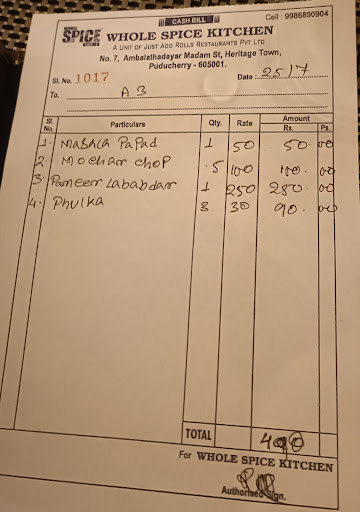 CASH BILL Cell : 9986890904
WHOLE SPICE SPICE WHOLE SPICE KITCHEN
A UNIT OF JUST ADD ROLLS RESTAURANTS PVT LTD
No. 7, Ambalathadayar Madam St, Heritage Town,
Puducherry - 605001.
Sl. No. 1017 Date : 25/7
To. A3
Sl. No. Particulars Qty. Rate Amount Rs. Ps.
1. Mashla Papad 1 50 50.00
2. Mochar chop .5 100 100.00
3. Paneer Lababdar 1 250 250 00
4. Phulka 3 30 90.00
TOTAL 490
For WHOLE SPICE KITCHEN
Authorised Sign.